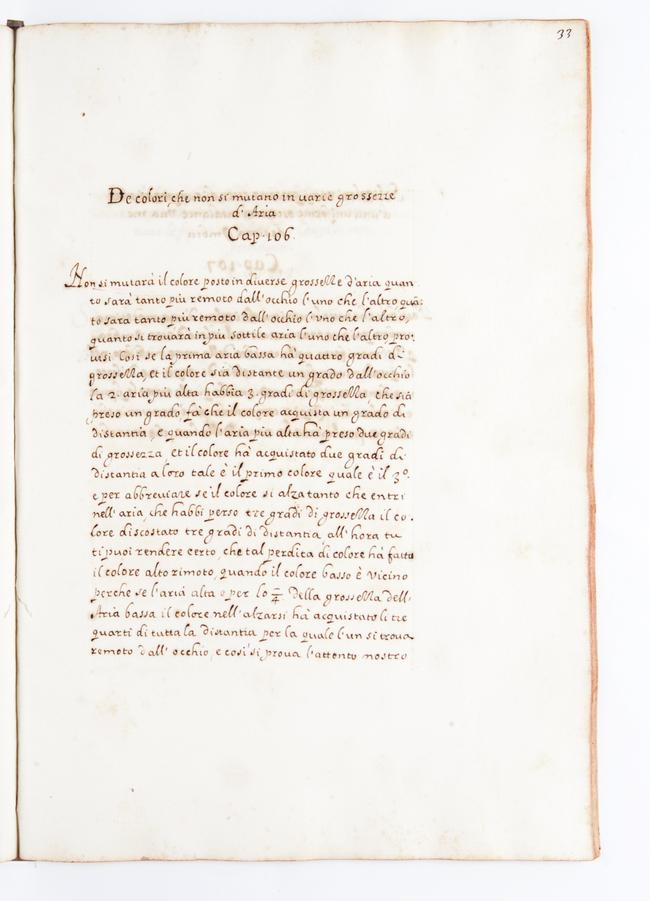 33
De colori, che non si mutano in varie grossezze
d'Aria
Cap. 106.
Non si mutarà il colore posto in diverse grosselle d'aria quan
to sarà tanto più remoto dall'occhio l'uno che l'altro quā:
to sarà tanto più remoto dall'occhio l'vno che l'altro,
quanto si trovarà in più sottile aria l'uno che l'altro pro:
visi Cosi se la prima aria bassa ha quattro gradi di
grossella, et il colore sia distante un grado dall'occhio
la 2. aria più alta habbia 3. gradi di grossella, che sia
preso un grado fà che il colore acquista un grado di
distantia, e quando l'aria più alta hà preso due gradi
di grossezza, et il colore hà acquistato due gradi di
distantia a loro tale è il primo colore quale è il 3º.
e per abbreviare se il colore si alza tanto che entri
nell'aria, che habbi perso tre gradi di grossella il co.
lore discostato tre gradi di distantia, all'hora tu
ti puoi rendere certo, che tal perdita di colore hà fatta
il colore alto rimoto, quando il colore basso è vicino
perche se l'aria alta e per lo 3/4 della grossella dell'
Aria bassa il colore nell'alzarsi hà acquistato li tre
quarti di tutta la distantia per la quale l'un si trova
remoto dall'occhio, e così si prova l'attento nostro